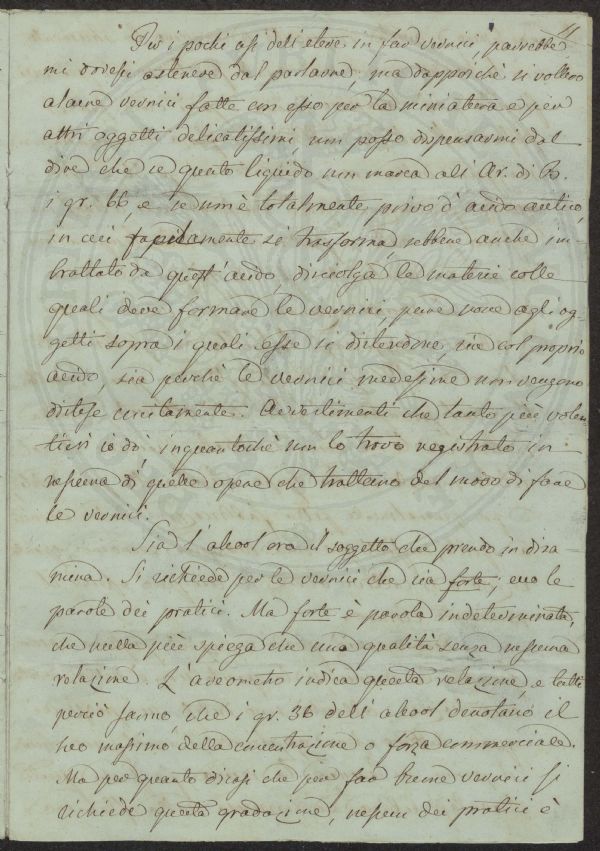 11
Pei pochi usi dell'etere in far vernici, parrebbe
mi dovessi astenere dal parlarne, ma dapporchè si vollero
alcune vernici fatte con esso per la miniatura e per
altri oggetti delicatissimi, non posso dispensarmi dal
dire che se questo liquido non marca all'Ar. di B.
i gr. 66, e se non è totalmente privo d'acido acetico,
in cui rapidamente si trasforma, sebbene anche im-
brattato da quest'acido, disciolga le materie colle
quali deve formare le vernici, pure nuoce agli og-
getti sopra i quali esse si distendono, sia col proprio
acido, sia perchè le vernici medesime non vengono
distese acconciamente. Avvertimenti che tanto più volen-
tieri io dò, inquantochè non lo trovo registrato in
nessuna di quelle opere che trattano del modo di fare
le vernici.
Sia l'alcool ora il soggetto che prendo in disa
mina. Si richiede per le vernici che sia forte; ecco le
parole dei pratici. Ma forte è parola indeterminata,
che nulla più spiega che una qualità senza nessuna
relazione. L'areometro indica questa relazione, e tutti
perciò sanno, che i gr. 36 dell'alcool denotano il
suo massimo della concentrazione o forza commerciale.
Ma per quanto dicasi che per far buone vernici si
richiede questa gradazione, nessun dei pratici è